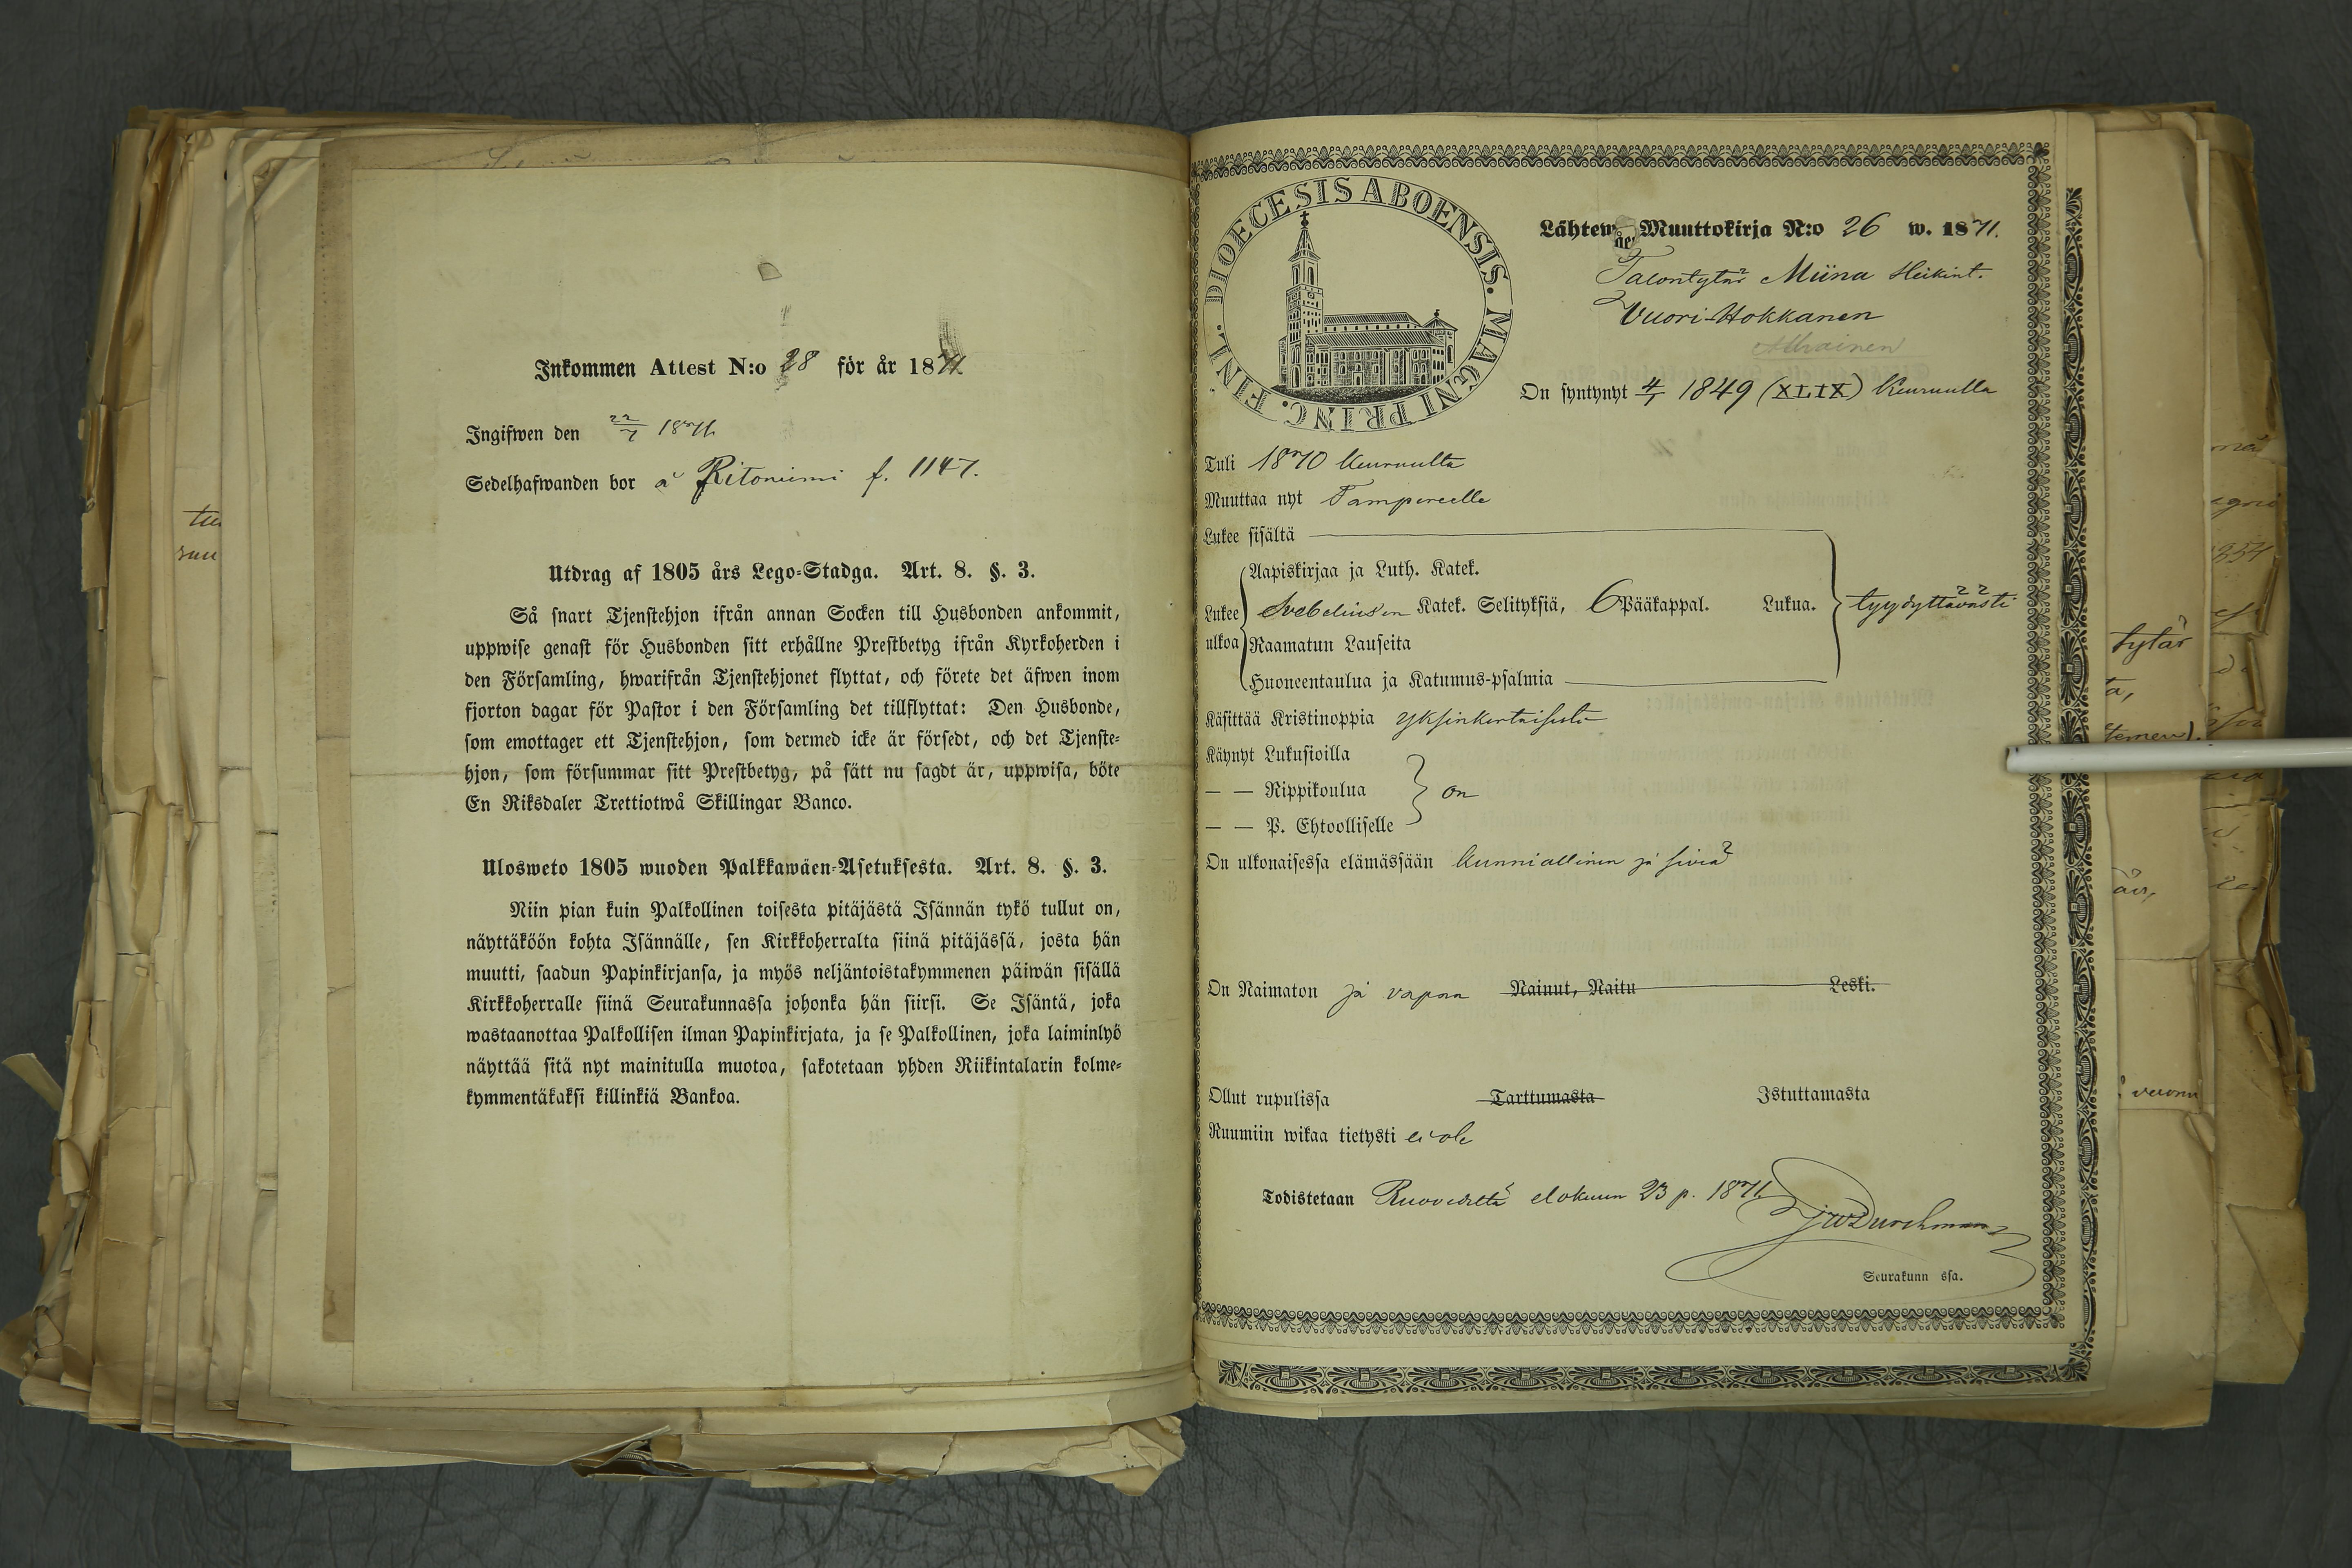 Inkommen Attest N:o 28 för år 1871
Ingifwen den 22/7 1871.
Sedelhafwanden bor å Ritoniemi f. 1147.
Utdrag af 1805 års Lego-Stadga. Art. 8. §. 3.
Så snart Tjenstehjon ifrån annan Socken till Husbonden ankommit,
uppwise genast för Husbonden sitt erhållne Prestbetyg ifrån Kyrkoherden i
den Församling, hwarifrån Tjenstehjonet flyttat, och förete det äfwen inom
fjorton dagar för Pastor i den Församling det tillflyttat: Den Husbonde,
som emottager ett Tjenstehjon, som dermed icke är försedt, och det Tjenste-
hjon, som försummar sitt Prestbetyg, på sätt nu sagdt är, uppwisa, böte
En Riksdaler Trettiotwå Skillingar Banco.
Ulosweto 1805 wuoden Palkkawäen-Asetuksesta. Art. 8. §. 3.
Niin pian kuin Palkollinen toisesta pitäjästä Isännän tykö tullut on,
näyttäköön kohta Isännälle, sen Kirkkoherralta siinä pitäjässä, josta hän
muutti, saadun Papinkirjansa, ja myös neljäntoistakymmenen päiwän sisällä
Kirkkoherralle siinä Seurakunnassa johonka hän siirsi. Se Isäntä, joka
wastaanottaa Palkollisen ilman Papinkirjata, ja se Palkollinen, joka laiminlyö
näyttää sitä nyt mainitulla muotoa, sakotetaan yhden Riikintalarin kolme-
kymmentäkaksi killinkiä Bankoa.
DIOECESIS ABOENSIS. MAGNI PRINC. FINL.
Lähtew Muuttokirja N:o 26 w. 1871.
Talontytär Miina Heikint.
Vuori-Hokkanen
On syntynyt 4/1 1849 (XLIX) Keuruulla
Tuli 1870 Keuruulta
Muuttaa nyt Tampereelle
Lukee sisältä
Aapiskirjaa ja Luth. Katek.
Lukee Svebeliusen Katek. Selityksiä, 6 Pääkappal. Lukua. tyydyttävästi
ulkoa Raamatun Lauseita
Huoneentaulua ja Katumus-psalmia
Käsittää Kristinoppia yksinkertaisesti
Käynyt Lukusioilla
— — Rippikoulua on
— — P. Ehtoolliselle
On ulkonaisessa elämässään kunniallinen ja siviä
On Naimaton ja vapaa Nainut, Naitu Leski.
Ollut rupulissa Tarttumasta Istuttamasta
Ruumiin wikaa tietysti ei ole
Todistetaan Ruovedeltä elokuun 23 p. 1871.
Durchman
Seurakunn ssa.
tytär